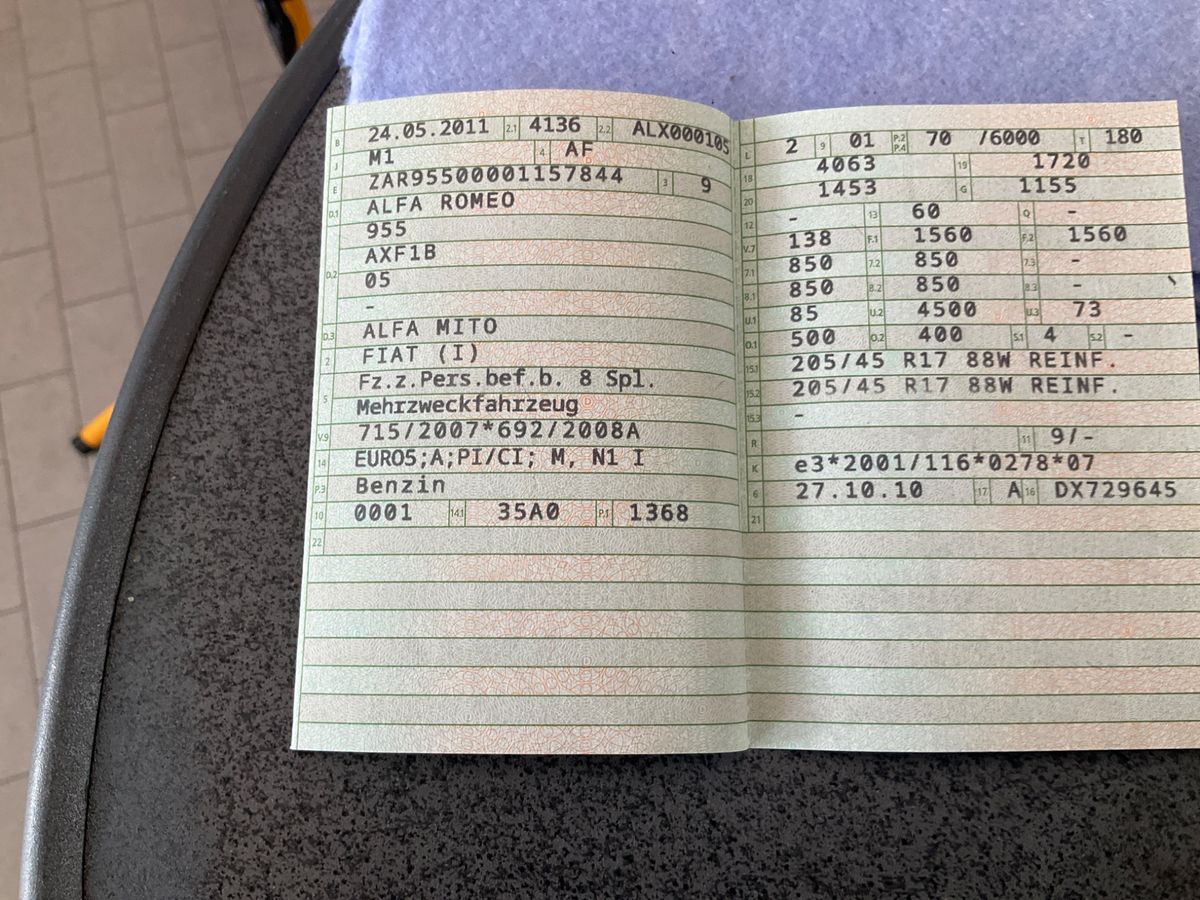 B 24.05.2011 2.1 4136 2.2 ALX000105
J M1 4 AF
E ZAR95500001157844 3 9
D.1 ALFA ROMEO
955
D.2 AXF1B
05
-
D.3 ALFA MITO
2 FIAT (I)
5 Fz.z.Pers.bef.b. 8 Spl.
Mehrzweckfahrzeug
V.9 715/2007*692/2008A
14 EURO5;A;PI/CI; M, N1 I
P.3 Benzin
10 0001 14.1 35A0 P.1 1368
22
L 2 9 01 P.2 P.4 70 /6000 T 180
18 4063 19 1720
20 1453 G 1155
12 - 13 60 Q -
V.7 138 F.1 1560 F.2 1560
7.1 850 7.2 850 7.3 -
8.1 850 8.2 850 8.3 -
U.1 85 U.2 4500 U.3 73
O.1 500 O.2 400 S.1 4 S.2 -
15.1 205/45 R17 88W REINF.
15.2 205/45 R17 88W REINF.
15.3 -
R 11 9/-
K e3*2001/116*0278*07
6 27.10.10 17 A 16 DX729645
21